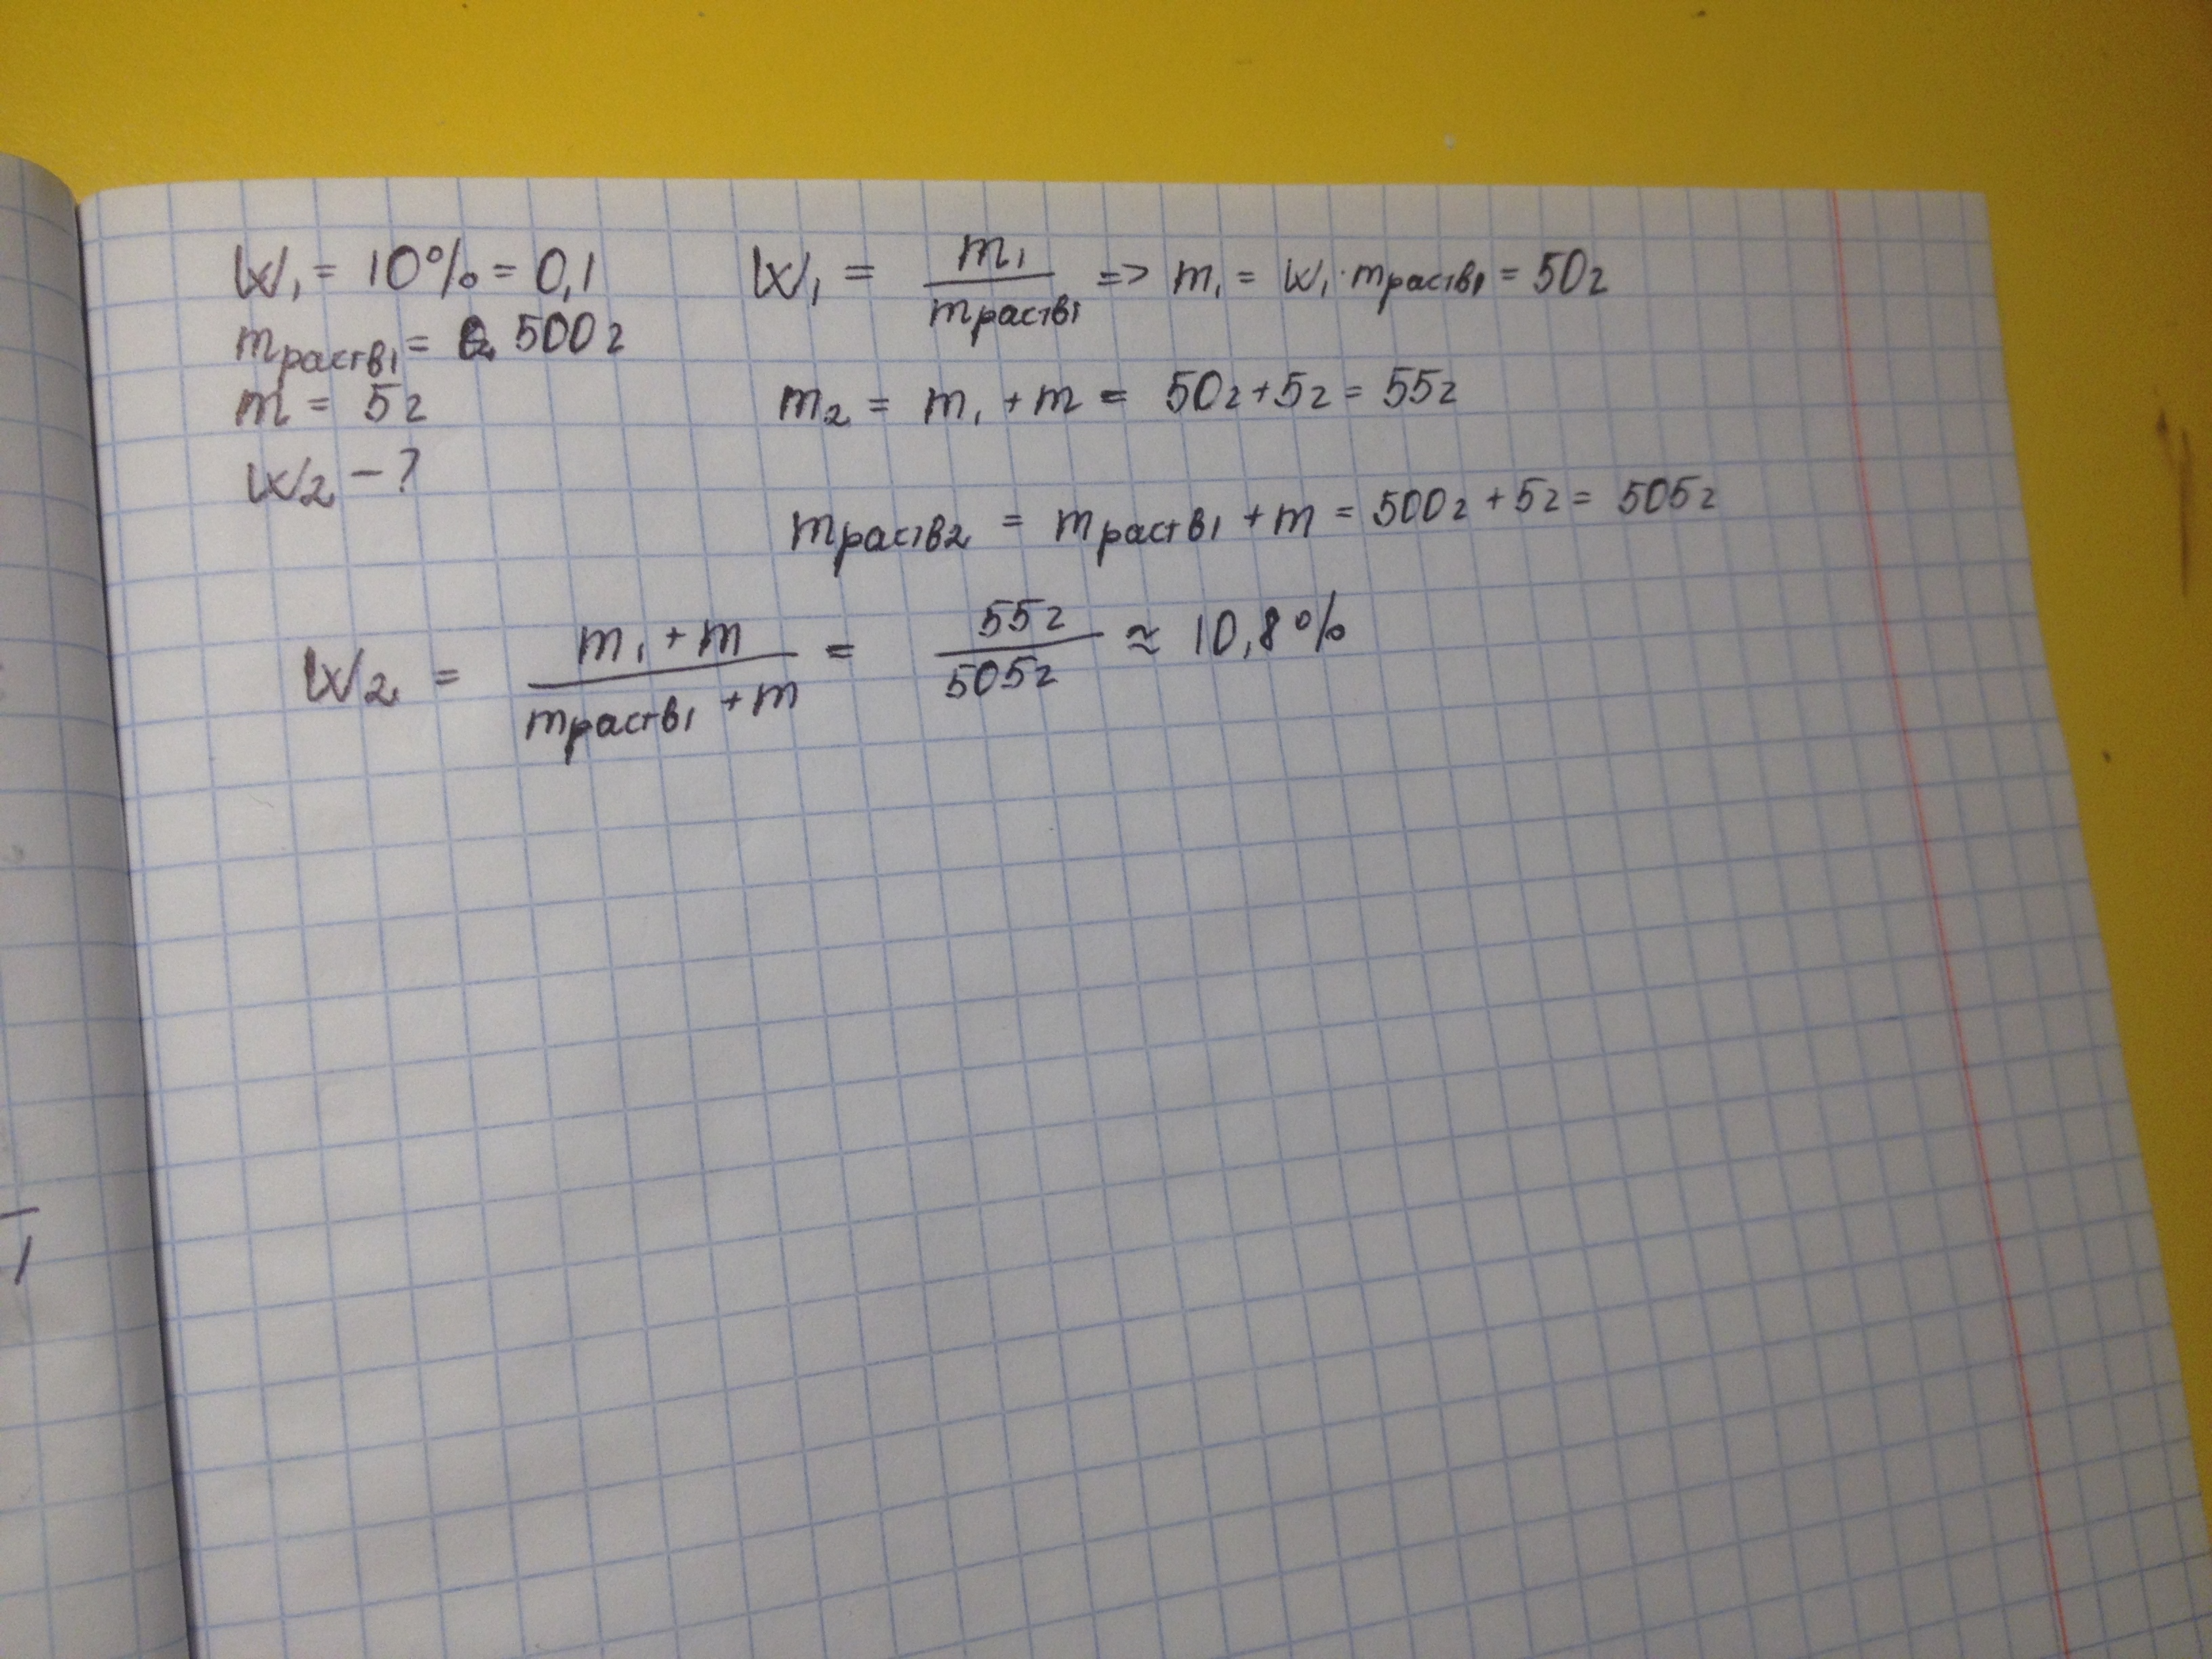 W₁ = 10% = 0,1
mраств1 = 500г
m = 5г
W₂ - ?
W₁ = m₁/mраств1 => m₁ = W₁·mраств1 = 50г
m₂ = m₁ + m = 50г+5г = 55г
mраств2 = mраств1 + m = 500г + 5г = 505г
W₂ = (m₁ + m)/(mраств1 + m) = 55г/505г ≈ 10,8%